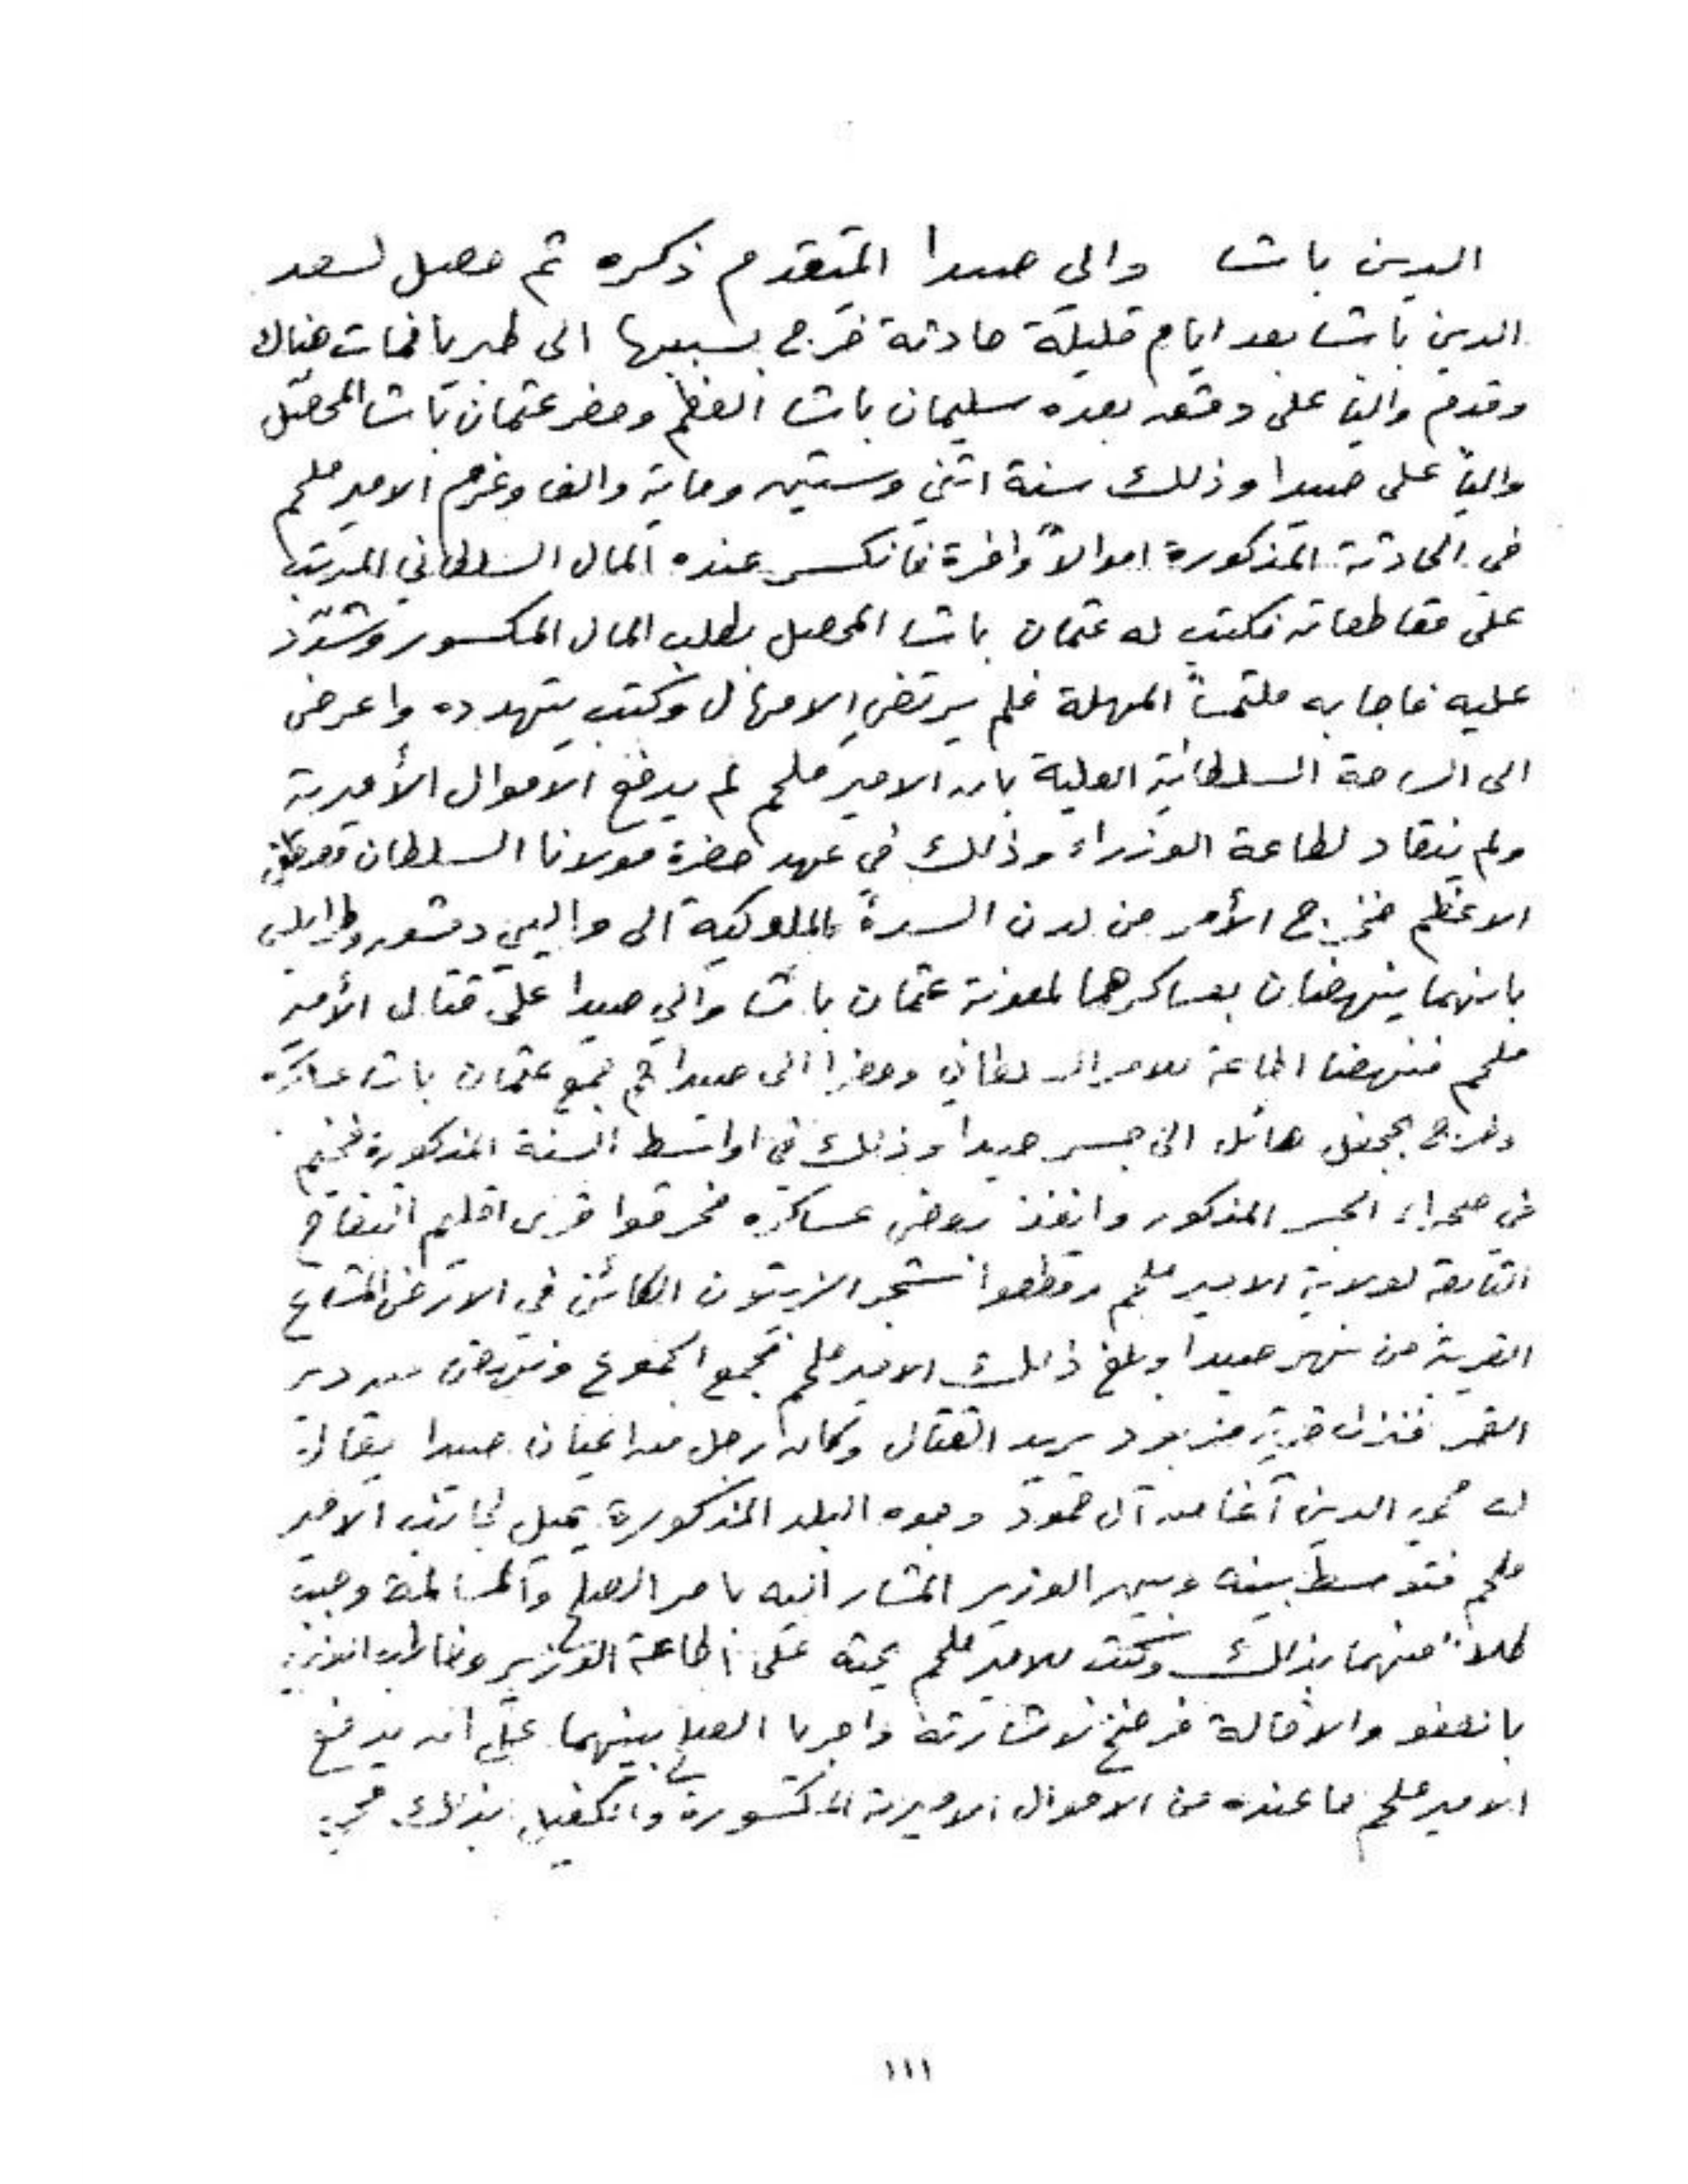 الدين باشا والى صيدا المتقدم ذكره ثم حصل لسعد
الدين باشا بعد ايام قليلة حادثة خرج بسببها الى طبريا فمات هناك
وقدم واليا على دمشق بعده سليمان باشا العظم وحضر عثمان باشا المحصّل
والياً على صيدا وذلك سنة اثنتي وستين وماية والف وغرم الامير ملحم
في الحادثة المذكورة اموالاً وافرة فانكسر عنده المال السلطاني المرتب
على مقاطعاته فكتب له عثمان باشا المحصل بطلب المال المكسور وشدّد
عليه فاجابه ملتمساً المهلة فلم يرتضِ الامهال وكتب يتهدده واعرض
الى الساحة السلطانية العلية بان الامير ملحم لم يدفع الاموال الأميرية
ولم ينقاد لطاعة الوزراء وذلك في عهد حضرة مولانا السلطان
الاعظم فخرج الأمر من لدن السدة الملوكية الى واليي دمشق وطرابلس
بانهما ينهضان بعساكرهما لمعونة عثمان باشا والي صيدا على قتال الأمير
ملحم فنهضا اطاعة للامر السلطاني وحضرا الى صيدا ثم جمع عثمان باشا عساكره
وخرج بجحفل هائل الى جسر صيدا وذلك في اواسط السنة المذكورة فخيم
في صحراء الجسر المذكور وانفذ بعض عساكره فحرقوا قرى اقليم التفاح
التابعة لولاية الامير ملحم وقطعوا شجر الزيتون الكائن في الارض المشاع
القريبة من نهر صيدا وبلغ ذلك الامير ملحم فجمع الجموع ونهض من دير
القمر فنزل قرية مزبود يريد القتال وكان رجل من اعيان صيدا يقال
له محي الدين آغا من آل حمود وجوه البلد المذكورة يميل لجانب الامير
ملحم فتوسط بينه وبين الوزير المشار اليه بامر الصلح والمسالمة وحبب
كلاً منهما بذلك وكتب للامير ملحم يحثه على اطاعة الوزير وخاطب الوزير
بالعفو والاقالة فرضخ لاشارته واجريا الصلح بينهما على ان يدفع
الامير ملحم ما عنده من الاموال الاميرية المكسورة والكفيل بذلك محي
١١١